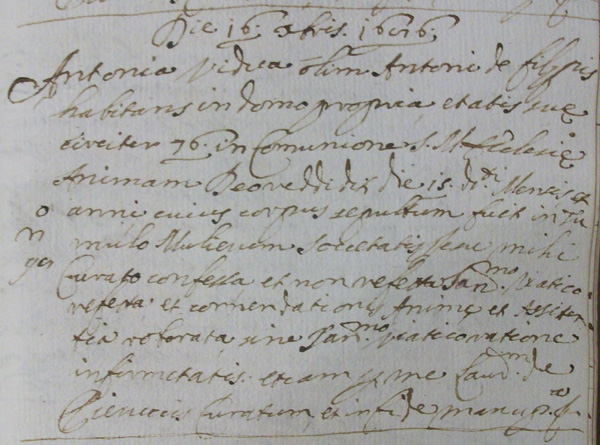 Die 16. Xbris. 1676.
Antonia Vidua olim Antoni de filippis
habitans in domo propria etatis sue
circiter 76. in Comunione S. M. Ecclesie
Animam Deo reddidit die 15. d.ti Mensis et
anni cuius corpus sepultum fuit in tu
mulo Mulierum Societatis sue mihi
Curato confessa et non refecta San.mo Viatico
refecta et comendationis Anime et Assisten
tia roborata sine San.mo Viatico ratione
infirmitatis. etiam p me de
Curatum, et in fide manu p.a